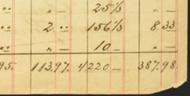 " " 25⅓
" 2 " 156⅓ 8 33
" " 10 –
95. 113.97. 4220 – 387.98.